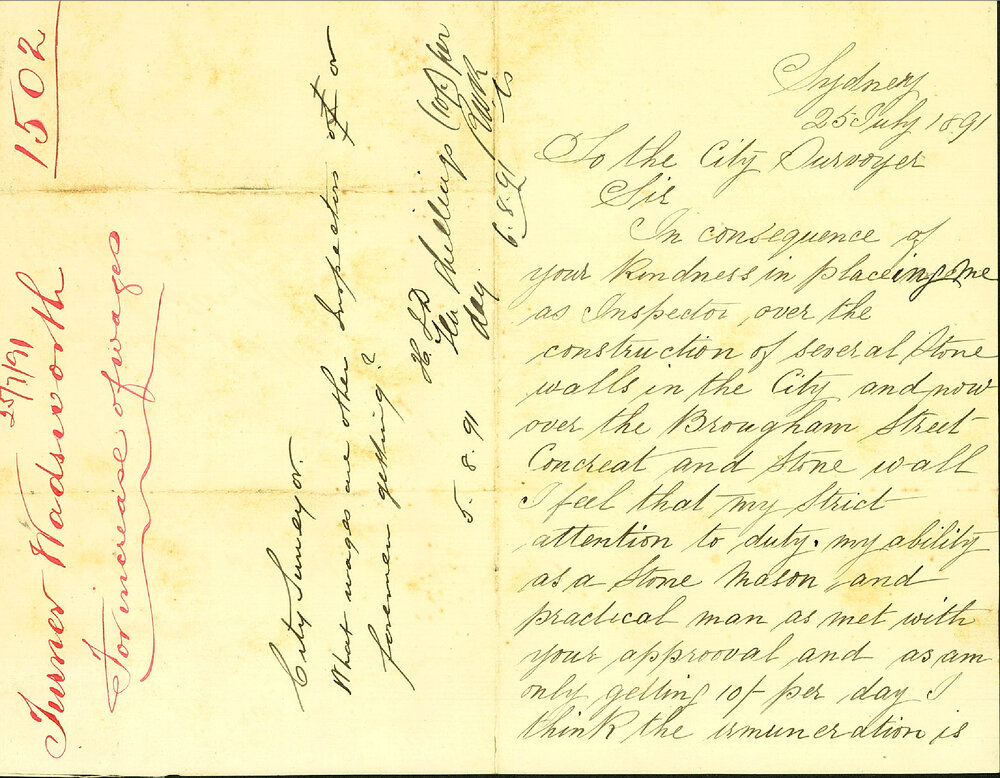 1502
25/7/91
Turner Wadsworth
For increase of wages
City Surveyor.
What wages are other Inspectors or
foremen getting?
H.
5.8.91
Ten shillings (10/-) per
day.
6.8.91
Sydney
25 July 1891
To the City Survoyer
Sir
In consequence of
your kindness in placeing me
as Inspector over the
construction of several Stone
walls in the City and now
over the Brougham Street
Concreat and Stone wall
I feel that my Strict
attention to duty. my ability
as a Stone Mason and
practical man as met with
your approoval and as am
only getting 10/- per day I
think the remuneration is